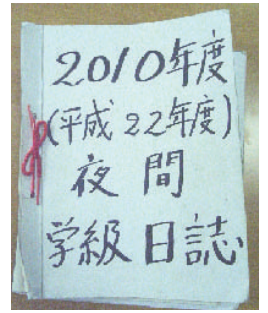 2010年度
(平成22年度)
夜間
学級日誌